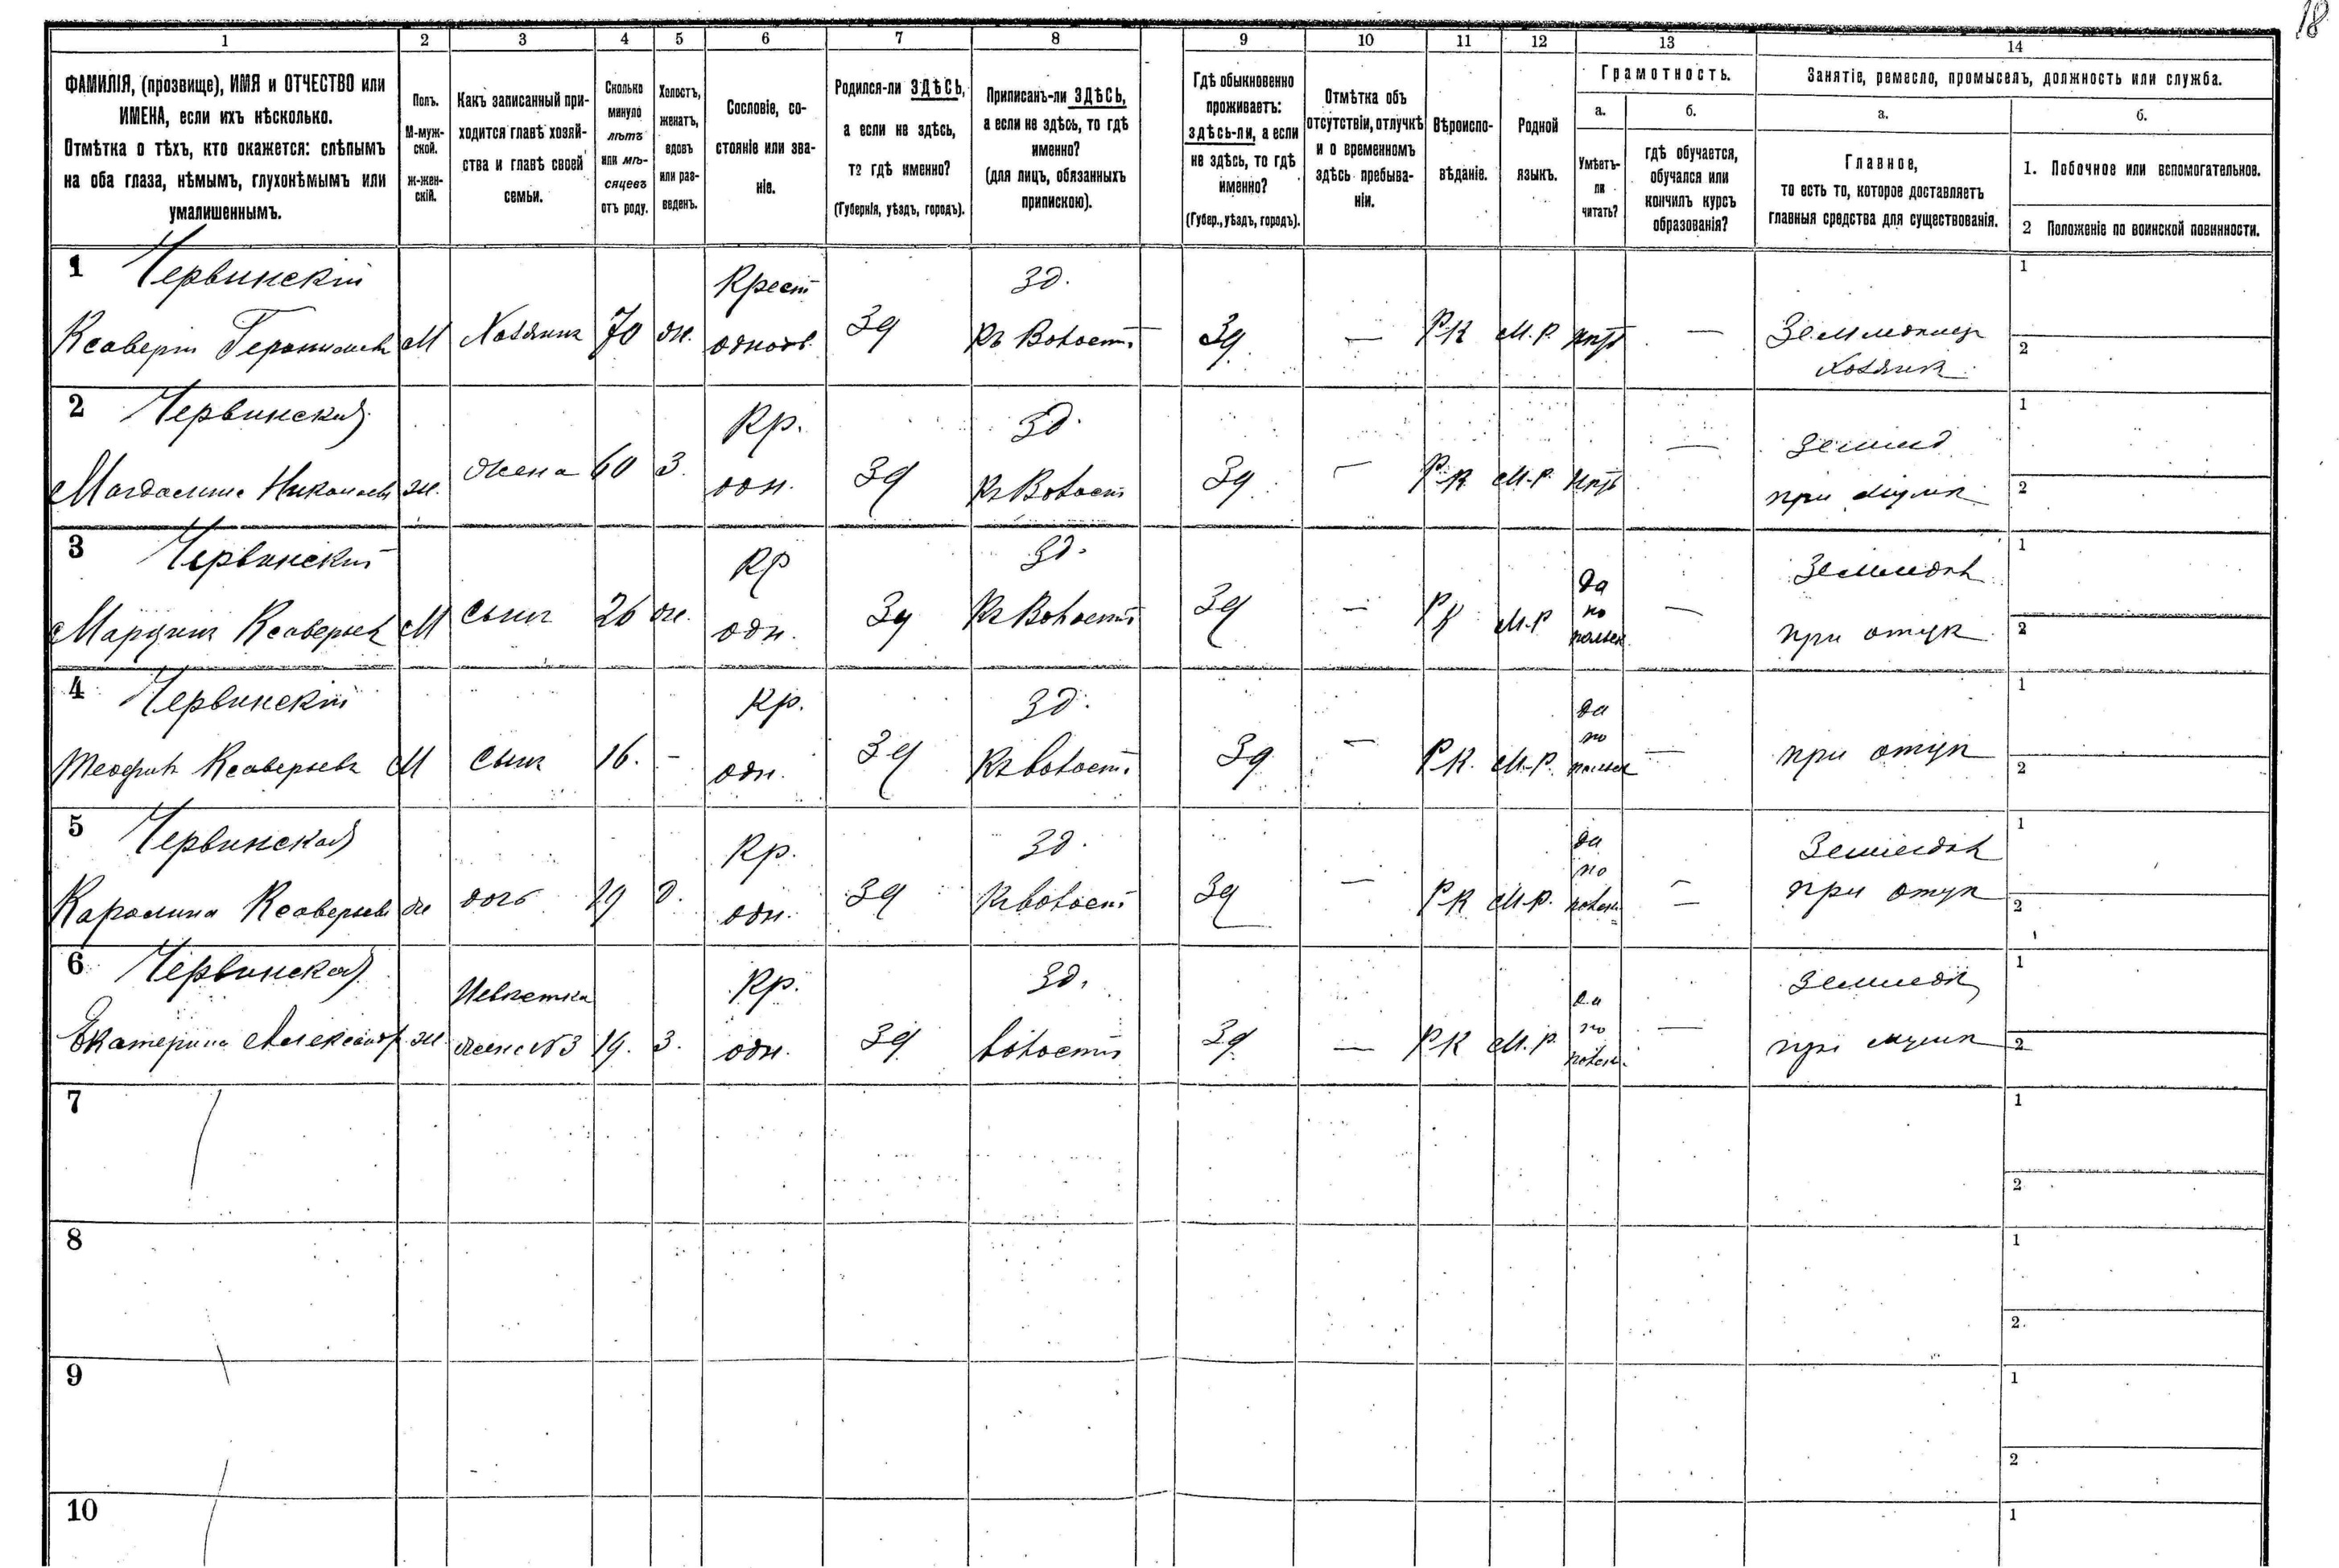 18
1 2 3 4 5 6 7 8 9 10 11 12 13 14
ФАМИЛІЯ, (прозвище), ИМЯ и ОТЧЕСТВО или
ИМЕНА, если ихъ нѣсколько.
Отмѣтка о тѣхъ, кто окажется: слѣпымъ
на оба глаза, нѣмымъ, глухонѣмымъ или
умалишеннымъ.
Полъ.
М-муж-
ской.
ж-жен-
скій.
Какъ записанный при-
ходится главѣ хозяй-
ства и главѣ своей
семьи.
Сколько
минуло
лѣтъ
или мѣ-
сяцевъ
отъ роду.
Холостъ,
женатъ,
вдовъ
или раз-
веденъ.
Сословіе, со-
стояніе или зва-
ніе.
Родился-ли ЗДѢСЬ,
а если не здѣсь,
то гдѣ именно?
(Губернія, уѣздъ, городъ).
Приписанъ-ли ЗДѢСЬ,
а если не здѣсь, то гдѣ
именно?
(для лицъ, обязанныхъ
припискою).
Гдѣ обыкновенно
проживаетъ:
здѣсь-ли, а если
не здѣсь, то гдѣ
именно?
(Губер., уѣздъ, городъ).
Отмѣтка объ
отсутствіи, отлучкѣ
и о временномъ
здѣсь пребыва-
ніи.
Вѣроиспо-
вѣданіе.
Родной
языкъ.
Грамотность.
а.
Умѣетъ-
ли
читать?
б.
гдѣ обучается,
обучался или
кончилъ курсъ
образованія?
Занятіе, ремесло, промыселъ, должность или служба.
а.
Главное,
то есть то, которое доставляетъ
главныя средства для существованія.
б.
1. Побочное или вспомогательное.
2 Положеніе по воинской повинности.
1 Червинскій Крест зд. 1
Ксаверій М Хозяинъ 70 ж. однодв. Зд Къ Волости Зд — Р К М. Р. нѣтъ — 2
Хозяинъ
2 Червинская Кр. зд. 1
Магдалина Николаев ж. жена 60 З. одн. Зд Къ Волости Зд — Р К М-Р. нѣтъ — при мужѣ 2
3 Червинскій Кр зд. да 1
Марцинъ Ксаверьев М сынъ 26 ж. одн. Зд Къ Волости Зд — Р К М-Р по — при отцѣ 2
польск
4 Червинскій Кр. зд. да 1
Теофилъ Ксаверьевъ М сынъ 16. - одн. Зд Къ волости Зд — Р К. М-Р. по — при отцѣ 2
польск
5 Червинская Кр. зд. да Земледѣл 1
Каролина Ксаверьев ж дочь 19 д. одн. Зд Къ волости Зд — Р К М-Р. по — при отцѣ 2
польск.
6 Червинская Невѣстка Кр. зд. да Земледѣл 1
Екатерина Александр. ж. жена №3 19. З. одн. Зд волости Зд — Р К М. Р. по — при мужѣ 2
польск.
7 1
2
8 1
2.
9 1
2
10 1